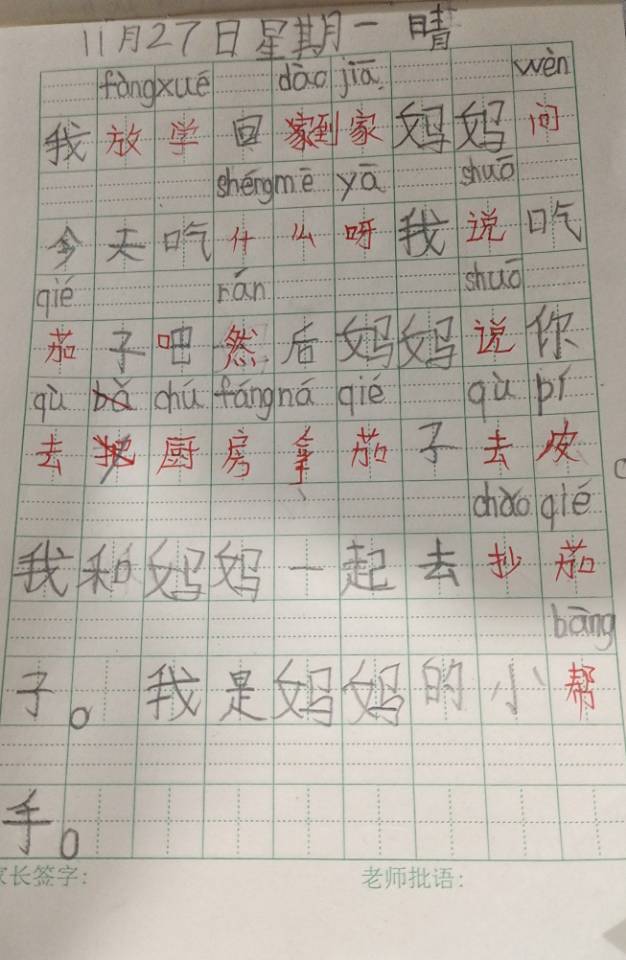 11月27日星期一 晴
fàngxué dào jiā wèn
我放学回到家妈妈问
shéngmē yā shuō
今天吃什么呀我说吃
qié rán shuō
茄子吧然后妈妈说你
qù bǎ chú fáng ná qié qù pí
去把厨房拿茄子去皮
chǎo qié
我和妈妈一起去抄茄
bāng
子。我是妈妈的小帮
手。
家长签字: 老师批语: